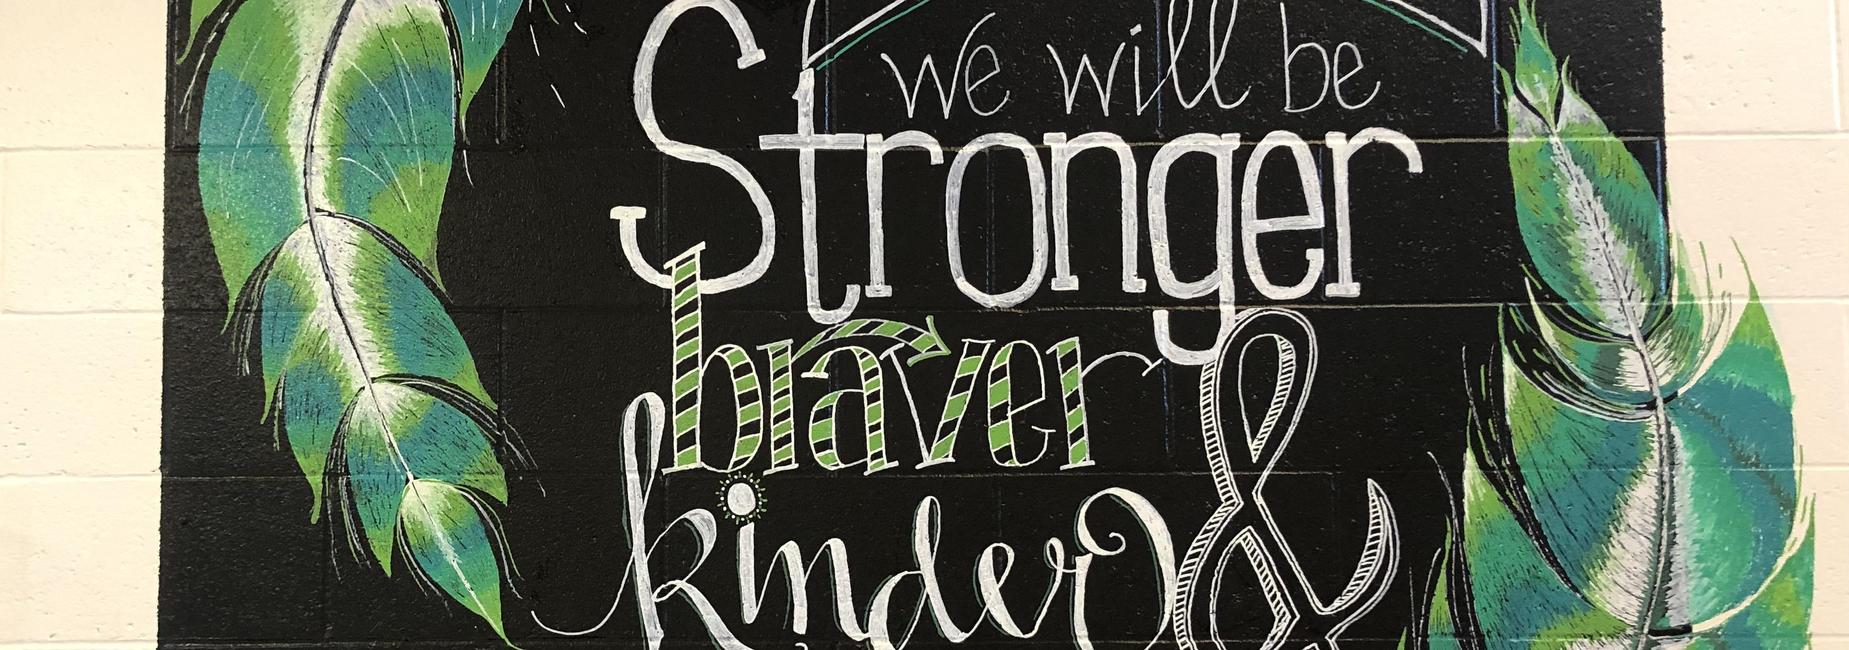 we will be
Stronger
braver
kinder &